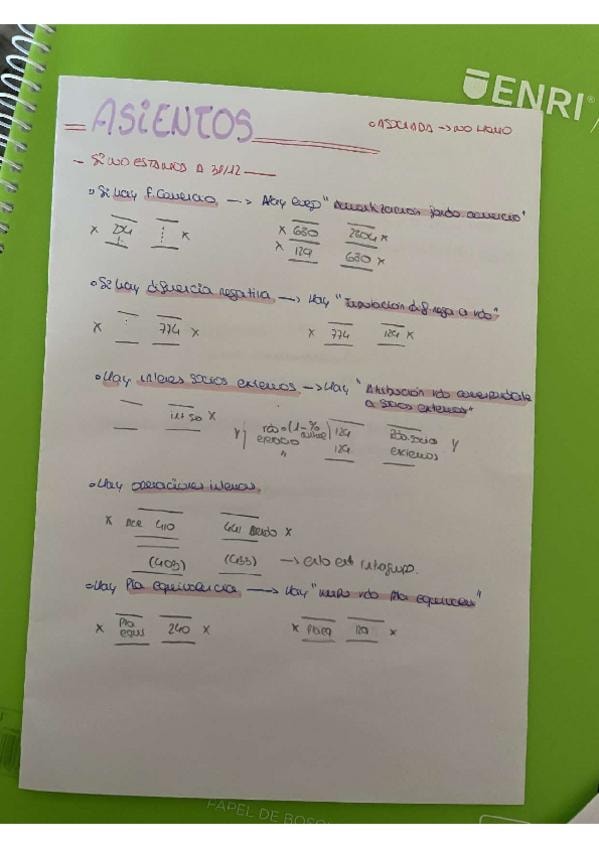 ENRI
ASIENTOS
ASOCIADA → NO HOMO
- SI NO ESTAMOS A 31/12
• Si hay f. Comercio → Hay eusp "Amortización fondo comercio"
x 204 x
x 680 2804 x
x 129 680 x
• Si hay diferencia negativa → Hay "Imputación dif. nega a rdo"
x 774 x
x 774 129 x
• Hay interes socios externos → Hay "Atribución rdo correspondiente a socios externos"
int so x
y rdo · (1 - % 129 Rdo. socio y
ejercicio 129 externos
"
• Hay operaciones internas.
x Acr 410 441 Deudo x
(403) (433) → esto est intragrupo.
• Hay Pta equivalencia → Hay rdo pta equivalen"
x Pta equi 240 x
x Pta eq 129 x
PAPEL DE